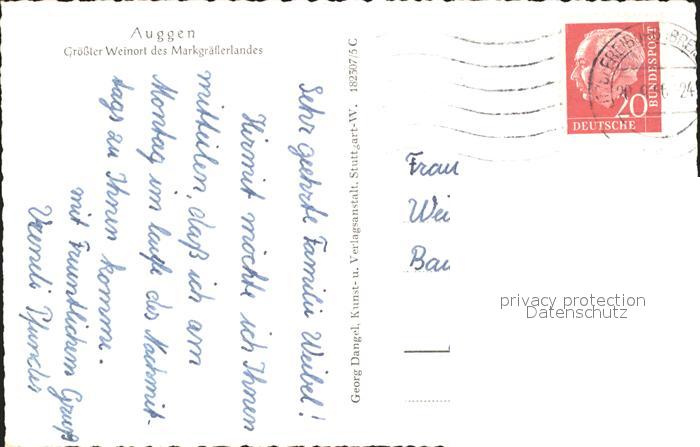 Auggen
Größter Weinort des Markgräflerlandes
Sehr geehrte Familie Weibel!
Hirmit möchte ich Ihnen
mitteilen, daß ich am
Montag im laufe des Nachmit-
tags zu Ihnen komme.
mit freuntlichem Gruß
Georg Dangel, Kunst- u. Verlagsanstalt, Stuttgart-W. 182307/5 C
20
DEUTSCHE
BUNDESPOST
Frau
Wei
Bau
privacy protection
Datenschutz